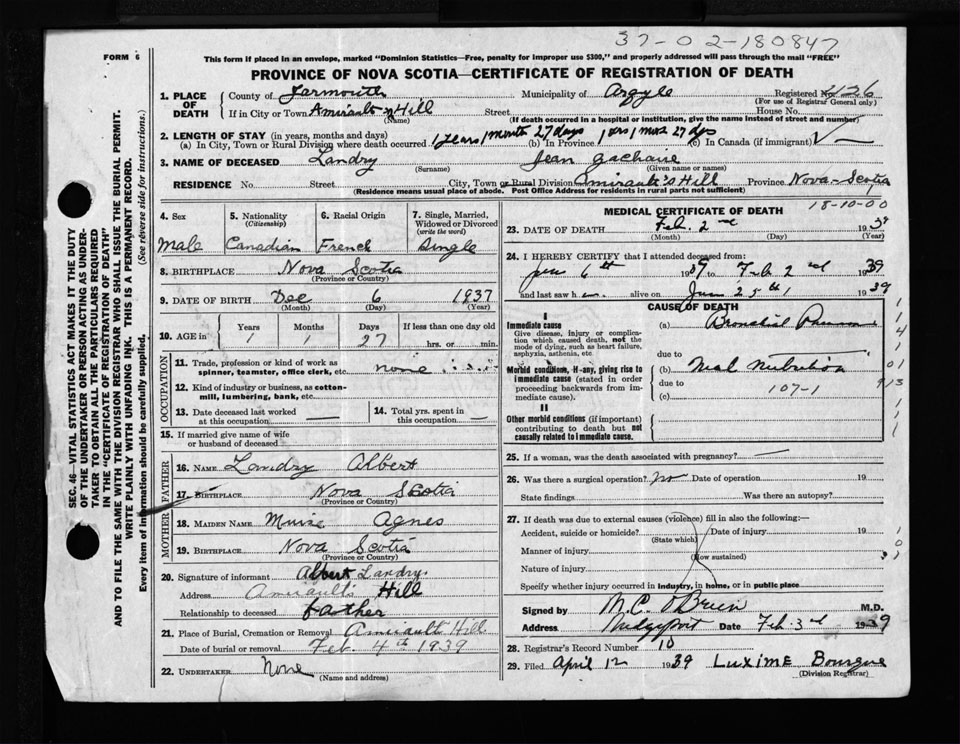 37-02-180847
FORM 6
This form if placed in an envelope, marked "Dominion Statistics—Free, penalty for improper use $300," and properly addressed will pass through the mail "FREE"
PROVINCE OF NOVA SCOTIA—CERTIFICATE OF REGISTRATION OF DEATH
1. PLACE OF DEATH
County of Yarmouth Municipality of Argyle Registered No. 436
(For use of Registrar General only)
If in City or Town Amirault's Hill Street House No.
(Name) (If death occurred in a hospital or institution, give the name instead of street and number)
2. LENGTH OF STAY (in years, months and days)
(a) In City, Town or Rural Division where death occurred 1 years 1 month 27 days (b) In Province 1 yrs 1 mos 27 dys (c) In Canada (if immigrant)
3. NAME OF DECEASED Landry Jean
(Surname) (Given name or names)
RESIDENCE No. Street City, Town or Rural Division Amirault's Hill Province Nova-Scotia
(Residence means usual place of abode. Post Office Address for residents in rural parts not sufficient)
18-10-00
4. Sex Male
5. Nationality (Citizenship) Canadian
6. Racial Origin French
7. Single, Married, Widowed or Divorced (write the word) Single
8. BIRTHPLACE Nova Scotia
(Province or Country)
9. DATE OF BIRTH Dec 6 1937
(Month) (Day) (Year)
10. AGE in Years Months Days If less than one day
1 1 27 hrs. or min.
OCCUPATION
11. Trade, profession or kind of work as spinner, teamster, office clerk, etc. none
12. Kind of industry or business, as cotton-mill, lumbering, bank, etc.
13. Date deceased last worked at this occupation —
14. Total yrs. spent in this occupation —
15. If married give name of wife or husband of deceased
FATHER
16. NAME Landry Albert
17. BIRTHPLACE Nova Scotia
(Province or Country)
MOTHER
18. MAIDEN NAME Muise Agnes
19. BIRTHPLACE Nova Scotia
(Province or Country)
20. Signature of informant Albert Landry.
Address Amirault's Hill
Relationship to deceased father
21. Place of Burial, Cremation or Removal Amirault Hill
Date of burial or removal Feb. 4th 1939
22. UNDERTAKER None
(Name and address)
MEDICAL CERTIFICATE OF DEATH
23. DATE OF DEATH Feb. 2nd 1939
(Month) (Day) (Year)
24. I HEREBY CERTIFY that I attended deceased from:
Jan 6th 1939 to Feb 2nd 1939
and last saw h alive on Jan 25th 1939
CAUSE OF DEATH
I
Immediate cause
Give disease, injury or complication which caused death, not the mode of dying, such as heart failure, asphyxia, asthenia, etc.
(a) Bronchial
due to
Morbid conditions, if any, giving rise to immediate cause (stated in order proceeding backwards from immediate cause).
(b)
due to
107-1
(c)
II
Other morbid conditions (if important) contributing to death but not causally related to immediate cause.
25. If a woman, was the death associated with pregnancy? —
26. Was there a surgical operation? No Date of operation 19
State findings Was there an autopsy?
27. If death was due to external causes (violence) fill in also the following:—
Accident, suicide or homicide? Date of injury 19
(State which)
Manner of injury
(How sustained)
Nature of injury
Specify whether injury occurred in industry, in home, or in public place
Signed by M.C. O'Brien M.D.
Address Wedgeport Date Feb. 3rd 1939
28. Registrar's Record Number 10
29. Filed April 12 1939 LUXIME Bourque
(Division Registrar)
SEC. 46—VITAL STATISTICS ACT MAKES IT THE DUTY
OF THE UNDERTAKER OR PERSON ACTING AS UNDER-
TAKER TO OBTAIN ALL THE PARTICULARS REQUIRED
IN THE "CERTIFICATE OF REGISTRATION OF DEATH"
AND TO FILE THE SAME WITH THE DIVISION REGISTRAR WHO SHALL ISSUE THE BURIAL PERMIT.
WRITE PLAINLY WITH UNFADING INK. THIS IS A PERMANENT RECORD.
Every item of information should be carefully supplied. (See reverse side for instructions.)